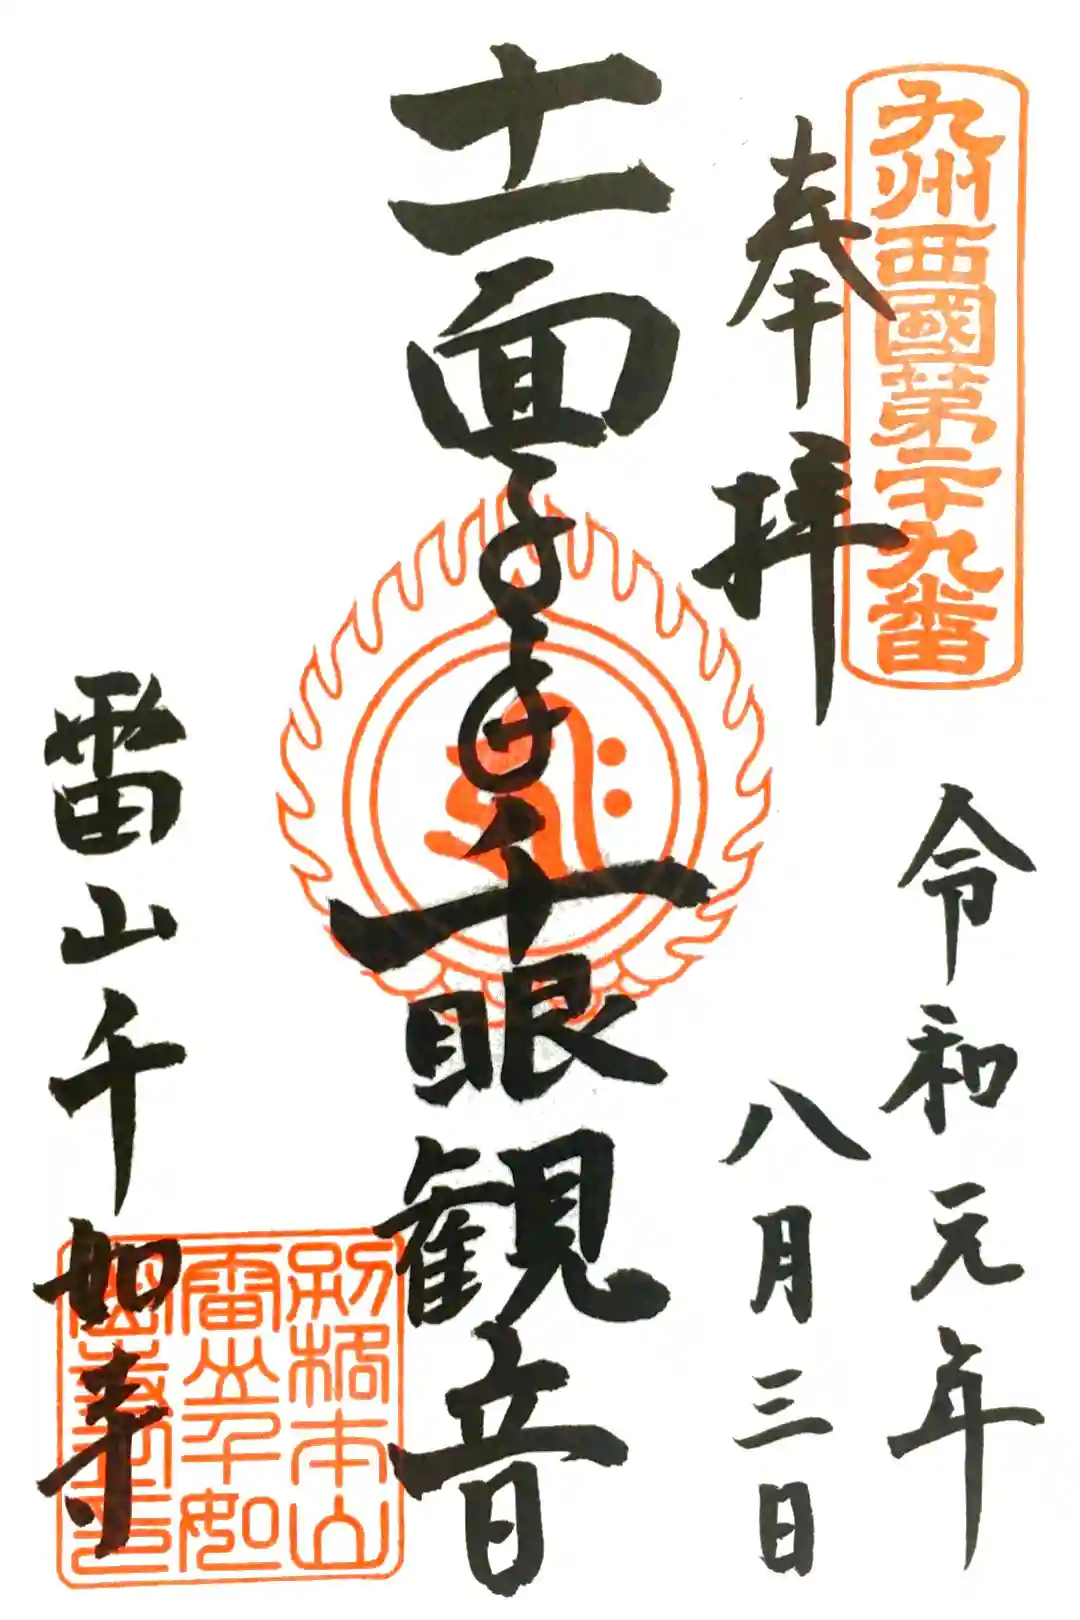 九州西國第二十九番
奉拝
令和元年
八月三日
十一面千手千眼観音
雷山千如寺
別格本山
雷山千如